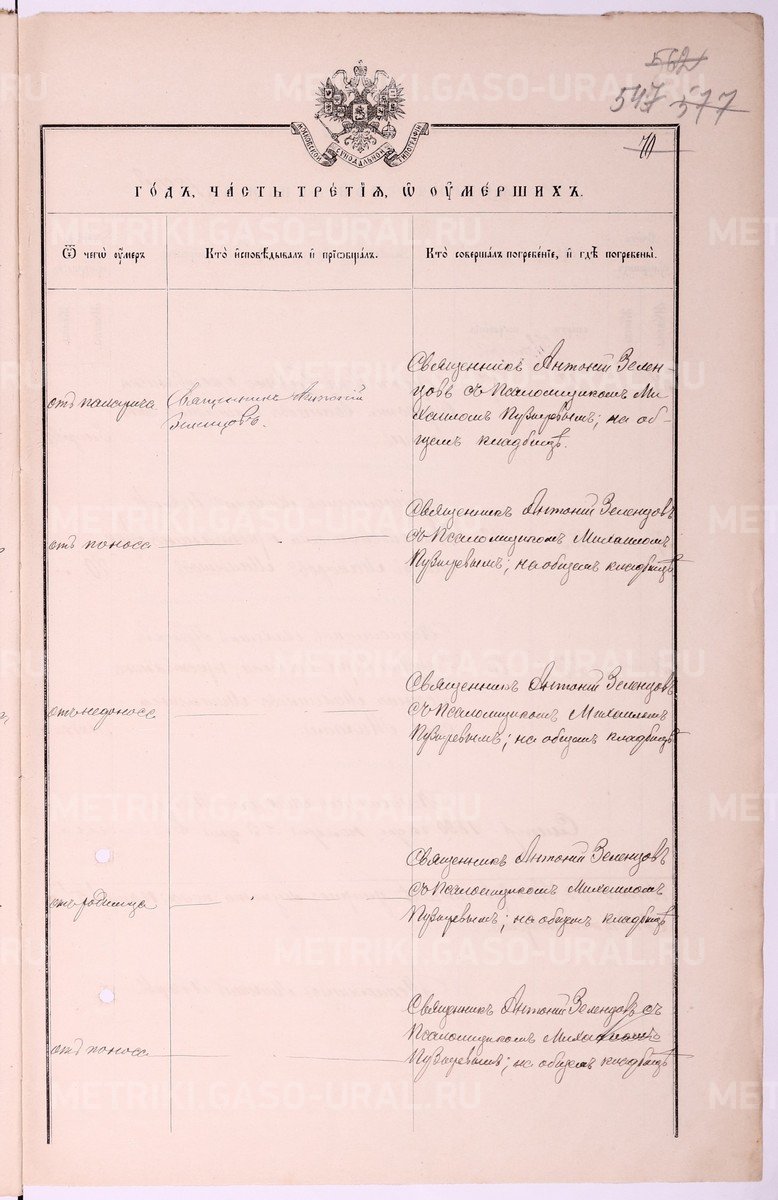 562
547 577
70
МОСКОВСКОЙ СѴНОДАЛЬНОЙ ТИПОГРАФІИ
ГОДЪ, ЧАСТЬ ТРЕТІЯ, Ѿ ОУМЕРШИХЪ.
Ѿ чегѡ оумеръ
Кто исповѣдывалъ и пріѡбщалъ.
Кто совершалъ погребеніе, и гдѣ погребены.
Священникъ Антоній Зелен-
цовъ съ Псаломщикомъ Ми
отъ паларича Священникъ Антоній
хаиломъ Пузыревымъ; на об-
Зеленцовъ.
щемъ кладбищѣ.
Священникъ Антоній Зеленцовъ
съ Псаломщикомъ Михаиломъ
отъ поноса
Пузыревымъ; на общемъ кладбищѣ
Священникъ Антоній Зеленцовъ
отъ недоноса
съ Псаломщикомъ Михаиломъ
Пузыревымъ; на общемъ кладбищѣ
Священникъ Антоній Зеленцовъ
съ Псаломщикомъ Михаиломъ
отъ родимца
Пузыревымъ; на общемъ кладбищѣ
Священникъ Антоній Зеленцовъ съ
Псаломщикомъ Михаиломъ
отъ поноса
Пузыревымъ; на общемъ кладбищѣ
METRIKI.GASO-URAL.RU